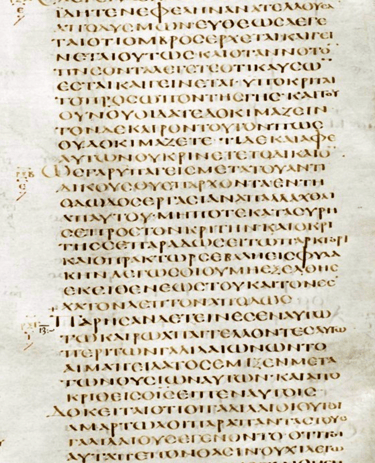 ΙΔΗΤΕ ΝΕΦΕΛΗΝ ΑΝΑΤΕΛΛΟΥΣΑ
ΑΠΟ ΔΥΣΜΩΝ ΕΥΘΕΩΣ ΛΕΓΕ
ΤΑΙ ΟΤΙ ΟΜΒΡΟΣ ΕΡΧΕΤΑΙ ΚΑΙ ΓΕΙ
ΝΕΤΑΙ ΟΥΤΩΣ ΚΑΙ ΟΤΑΝ ΝΟΤΟ
ΠΝΕΟΝΤΑ ΛΕΓΕΤΕ ΟΤΙ ΚΑΥΣΩ
ΕΣΤΑΙ ΚΑΙ ΓΕΙΝΕΤΑΙ ΥΠΟΚΡΙΤΑΙ
ΤΟ ΠΡΟΣΩΠΟΝ ΤΗΣ ΓΗΣ ΚΑΙ ΤΟΥ
ΟΥΝΟΥ ΟΙΔΑΤΕ ΔΟΚΙΜΑΖΕΙΝ
ΤΟΝ ΔΕ ΚΑΙΡΟΝ ΤΟΥΤΟΝ ΠΩΣ
ΟΥ ΔΟΚΙΜΑΖΕΤΕ ΤΙ ΔΕ ΚΑΙ ΑΦ Ε
ΑΥΤΩΝ ΟΥ ΚΡΙΝΕΤΕ ΤΟ ΔΙΚΑΙΟ
ΩΣ ΓΑΡ ΥΠΑΓΕΙΣ ΜΕΤΑ ΤΟΥ ΑΝΤΙ
ΔΙΚΟΥ ΣΟΥ ΕΠ ΑΡΧΟΝΤΑ ΕΝ ΤΗ
ΟΔΩ ΔΟΣ ΕΡΓΑΣΙΑΝ ΑΠΑΛΛΑΧΘΑΙ
ΑΠ ΑΥΤΟΥ· ΜΗΠΟΤΕ ΚΑΤΑΣΥΡΗ
ΣΕ ΠΡΟΣ ΤΟΝ ΚΡΙΤΗΝ ΚΑΙ Ο ΚΡΙ
ΤΗΣ ΣΕ ΠΑΡΑΔΩΣΕΙ ΤΩ ΠΡΑΚΤΟΡΙ
ΚΑΙ Ο ΠΡΑΚΤΩΡ ΣΕ ΒΑΛΗ ΕΙΣ ΦΥΛΑ
ΚΗΝ ΛΕΓΩ ΣΟΙ ΟΥ ΜΗ ΕΞΕΛΘΗΣ
ΕΚΕΙΘΕΝ ΕΩΣ ΤΟΥ ΚΑΙ ΤΟΝ ΕΣ
ΧΑΤΟΝ ΛΕΠΤΟΝ ΑΠΟΔΩΣ
ΠΑΡΗΣΑΝ ΔΕ ΤΙΝΕΣ ΕΝ ΑΥΤΩ
ΤΩ ΚΑΙΡΩ ΑΠΑΓΓΕΛΛΟΝΤΕΣ ΑΥΤΩ
ΠΕΡΙ ΤΩΝ ΓΑΛΙΛΑΙΩΝ ΩΝ ΤΟ
ΑΙΜΑ ΠΕΙΛΑΤΟΣ ΕΜΙΞΕΝ ΜΕΤΑ
ΤΩΝ ΘΥΣΙΩΝ ΑΥΤΩΝ ΚΑΙ ΑΠΟ
ΚΡΙΘΕΙΣ Ο ΙΣ ΕΙΠΕΝ ΑΥΤΟΙΣ
ΔΟΚΕΙΤΑΙ ΟΤΙ ΟΙ ΓΑΛΙΛΑΙΟΙ ΟΥΤΟΙ
ΑΜΑΡΤΩΛΟΙ ΠΑΡΑ ΠΑΝΤΑΣ ΤΟΥΣ
ΓΑΛΙΛΑΙΟΥΣ ΕΓΕΝΟΝΤΟ ΟΤΙ ΤΟΙ
ΑΥΤΑ ΠΕΠΟΝΘΑΣΙΝ ΟΥΧΙ ΛΕΓΩ